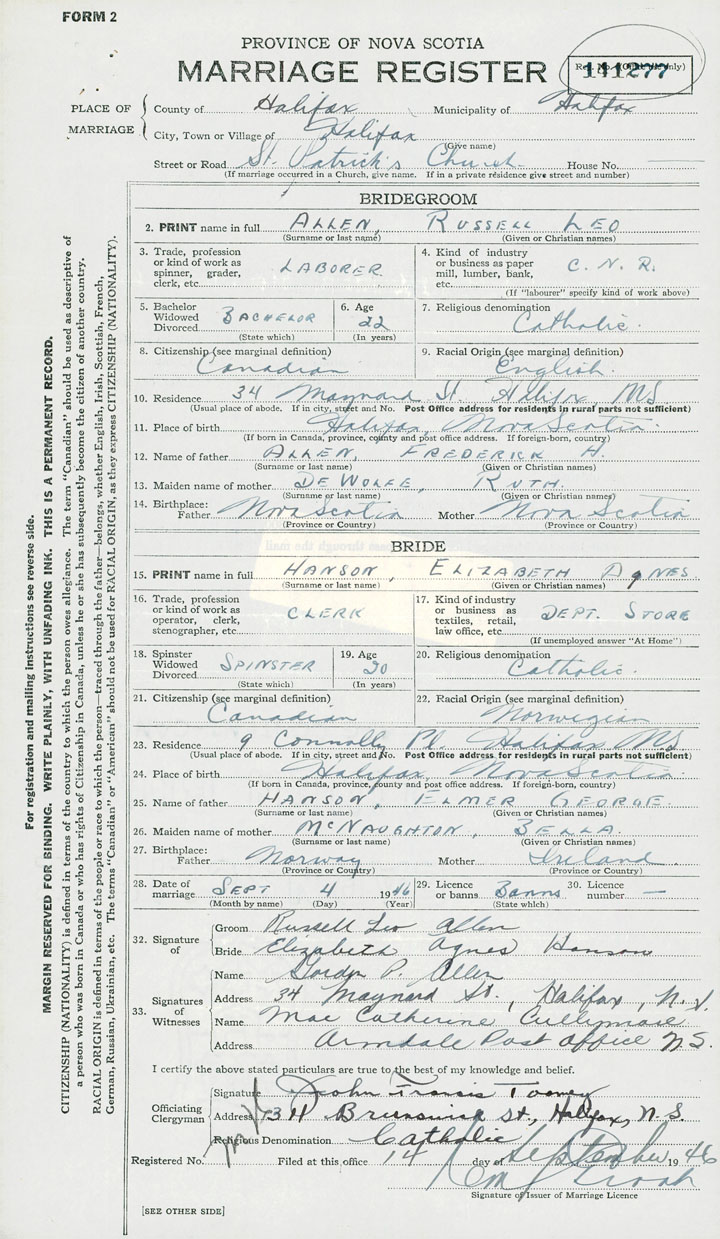 FORM 2
PROVINCE OF NOVA SCOTIA
MARRIAGE REGISTER
141277
PLACE OF MARRIAGE
County of Halifax Municipality of Halifax
City, Town or Village of Halifax
(Give name)
Street or Road St. Patrick's Church House No.
(If marriage occurred in a Church, give name. If in a private residence give street and number)
BRIDEGROOM
2. PRINT name in full ALLEN, RUSSELL LEO
(Surname or last name) (Given or Christian names)
3. Trade, profession or kind of work as spinner, grader, clerk, etc. LABORER
4. Kind of industry or business as paper mill, lumber, bank, etc. C.N.R.
(If "labourer" specify kind of work above)
5. Bachelor Widowed Divorced BACHELOR
(State which)
6. Age 22
(In years)
7. Religious denomination Catholic.
8. Citizenship (see marginal definition) Canadian
9. Racial Origin (see marginal definition) English.
10. Residence 34 Maynard St. Halifax NS
(Usual place of abode. If in city, street and No. Post Office address for residents in rural parts not sufficient)
11. Place of birth Halifax, Nova Scotia.
(If born in Canada, province, county and post office address. If foreign-born, country)
12. Name of father ALLEN, FREDERICK H.
(Surname or last name) (Given or Christian names)
13. Maiden name of mother DE WOLFE, RUTH.
(Surname or last name) (Given or Christian names)
14. Birthplace: Father Nova Scotia Mother Nova Scotia
(Province or Country) (Province or Country)
BRIDE
15. PRINT name in full HANSON, ELIZABETH AGNES.
(Surname or last name) (Given or Christian names)
16. Trade, profession or kind of work as operator, clerk, stenographer, etc. CLERK
17. Kind of industry or business as textiles, retail, law office, etc. DEPT. STORE
(If unemployed answer "At Home")
18. Spinster Widowed Divorced SPINSTER
(State which)
19. Age 20
(In years)
20. Religious denomination Catholic.
21. Citizenship (see marginal definition) Canadian
22. Racial Origin (see marginal definition) Norwegian
23. Residence 9 Connolly Pl. Halifax NS
(Usual place of abode. If in city, street and No. Post Office address for residents in rural parts not sufficient)
24. Place of birth Halifax, Nova Scotia.
(If born in Canada, province, county and post office address. If foreign-born, country)
25. Name of father HANSON, ELMER GEORGE.
(Surname or last name) (Given or Christian names)
26. Maiden name of mother McNAUGHTON, BELLA.
(Surname or last name) (Given or Christian names)
27. Birthplace: Father Norway Mother Ireland
(Province or Country) (Province or Country)
28. Date of marriage SEPT 4 1946
(Month by name) (Day) (Year)
29. Licence or banns Banns
(State which)
30. Licence number —
32. Signature of
Groom Russell Leo Allen
Bride Elizabeth Agnes Hanson
33. Signatures of Witnesses
Name P. Allen
Address 34 Maynard St., Halifax, N.S.
Name Mae Catherine
Address Armdale Post Office N.S.
I certify the above stated particulars are true to the best of my knowledge and belief.
Officiating Clergyman
Signature John Francis Toomey
Address Brunswick St., Halifax, N.S.
Religious Denomination Catholic
Registered No. Filed at this office 14 day of September 1946
Signature of Issuer of Marriage Licence
[SEE OTHER SIDE]
For registration and mailing instructions see reverse side.
MARGIN RESERVED FOR BINDING. WRITE PLAINLY, WITH UNFADING INK. THIS IS A PERMANENT RECORD.
CITIZENSHIP (NATIONALITY) is defined in terms of the country to which the person owes allegiance. The term "Canadian" should be used as descriptive of
a person who was born in Canada or who has rights of Citizenship in Canada, unless he or she has subsequently become the citizen of another country.
RACIAL ORIGIN is defined in terms of the people or race to which the person—traced through the father—belongs, whether English, Irish, Scottish, French,
German, Russian, Ukrainian, etc. The terms "Canadian" or "American" should not be used for RACIAL ORIGIN, as they express CITIZENSHIP (NATIONALITY).